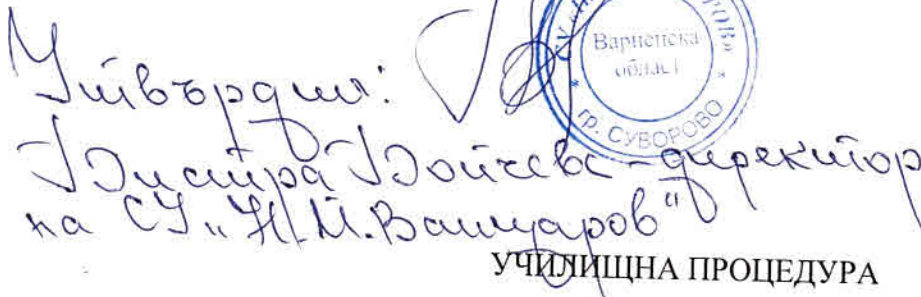 Утвърдил:
Бистра Бойчева - директор
на СУ „Н. Й. Вапцаров“
Варненска
област
гр. СУВОРОВО
УЧИЛИЩНА ПРОЦЕДУРА